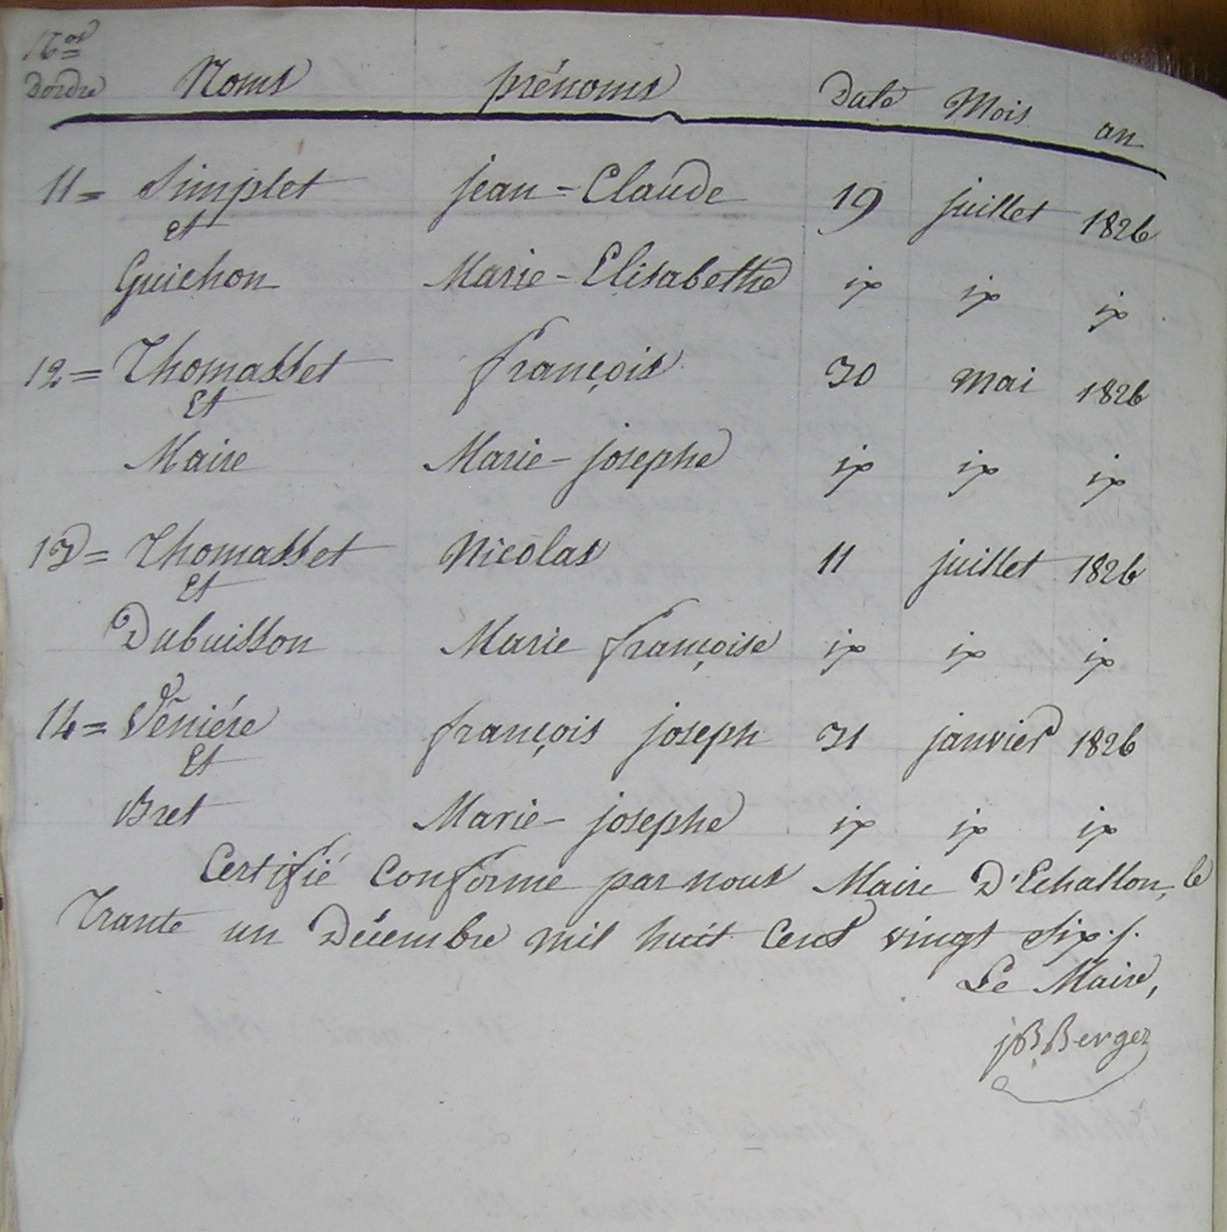 Nos
D'ordre Noms prénoms Date Mois an
11= Simplet jean-Claude 19 juillet 1826
et
Guichon Marie-Elisabethe ix ix ix
12= Thomasset françois 30 mai 1826
Et
Maire Marie-josephe ix ix ix
13= Thomasset Nicolas 11 juillet 1826
Et
Dubuisson Marie françoise ix ix ix
14= Véniére françois joseph 31 janvier 1826
Et
Bret Marie-josephe ix ix ix
Certifié Conforme par nous Maire D'Echallon, le
Trante un Décembre mil huit Cent vingt Six./.
Le Maire,
jB. Berger